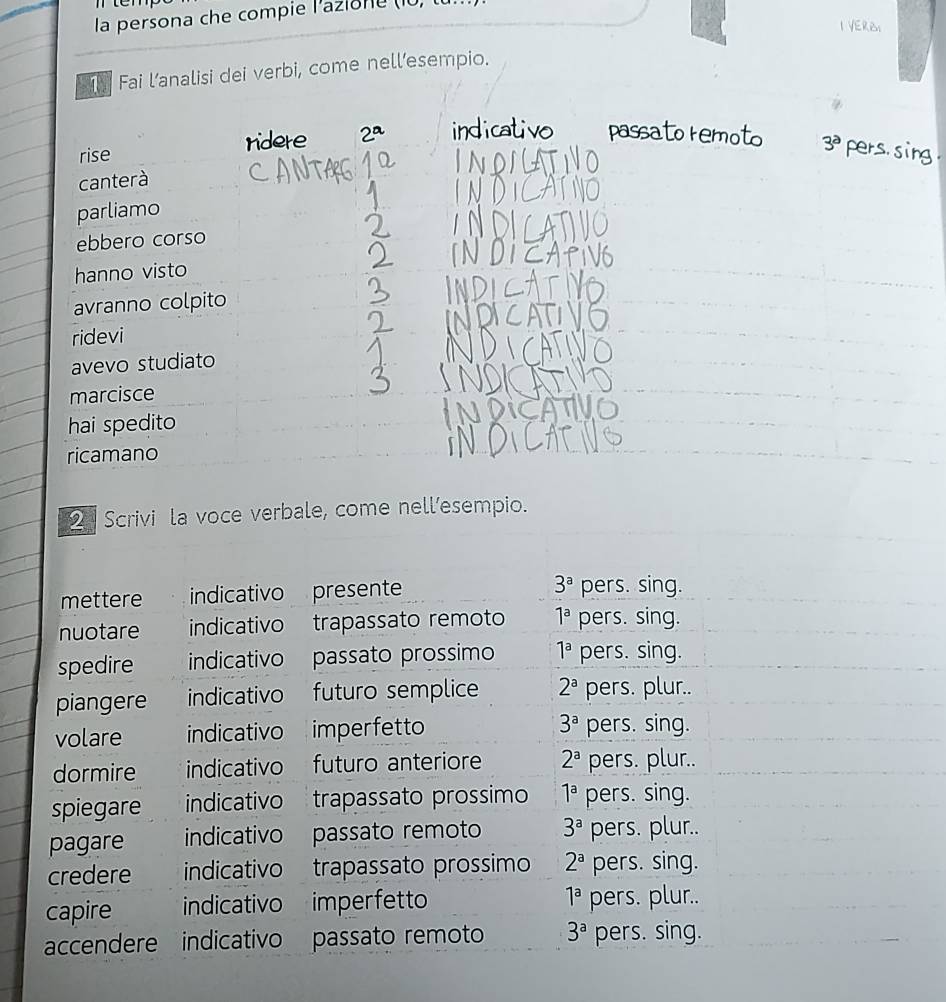 la persona che compie l'azione
I VERBI
1 Fai l'analisi dei verbi, come nell'esempio.
rise ridere 2ª indicativo passato remoto 3ª pers. sing.
canterà CANTARE 1ª INDICATIVO
parliamo 1 INDICATIVO
ebbero corso 2 INDICATIVO
hanno visto 2 INDICATIVO
avranno colpito 3 INDICATIVO
ridevi 2 INDICATIVO
avevo studiato 1 INDICATIVO
marcisce 3 INDICATIVO
hai spedito INDICATIVO
ricamano INDICATIVO
2 Scrivi la voce verbale, come nell'esempio.
mettere indicativo presente 3ª pers. sing.
nuotare indicativo trapassato remoto 1ª pers. sing.
spedire indicativo passato prossimo 1ª pers. sing.
piangere indicativo futuro semplice 2ª pers. plur..
volare indicativo imperfetto 3ª pers. sing.
dormire indicativo futuro anteriore 2ª pers. plur..
spiegare indicativo trapassato prossimo 1ª pers. sing.
pagare indicativo passato remoto 3ª pers. plur..
credere indicativo trapassato prossimo 2ª pers. sing.
capire indicativo imperfetto 1ª pers. plur..
accendere indicativo passato remoto 3ª pers. sing.